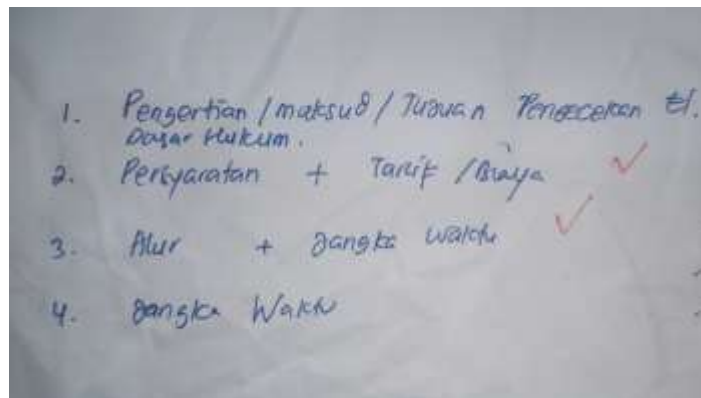 1. Pengertian / maksud / Tujuan Pengecekan El.
Dasar Hukum.
2. Persyaratan + Tarif / Biaya
3. Alur + Jangka Waktu
4. Jangka Waktu